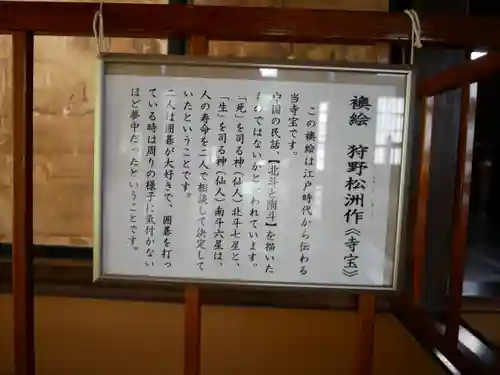 襖絵 狩野松洲作《寺宝》
この襖絵は江戸時代から伝わる
当寺宝です。
中国の民話、【北斗と南斗】を描いた
ものではないかと言われています。
「死」を司る神（仙人）北斗七星と、
「生」を司る神（仙人）南斗六星は、
人の寿命を二人で相談して決定して
いたということです。
二人は囲碁が大好きで、囲碁を打っ
ている時は周りの様子に気付かない
ほど夢中だったということです。